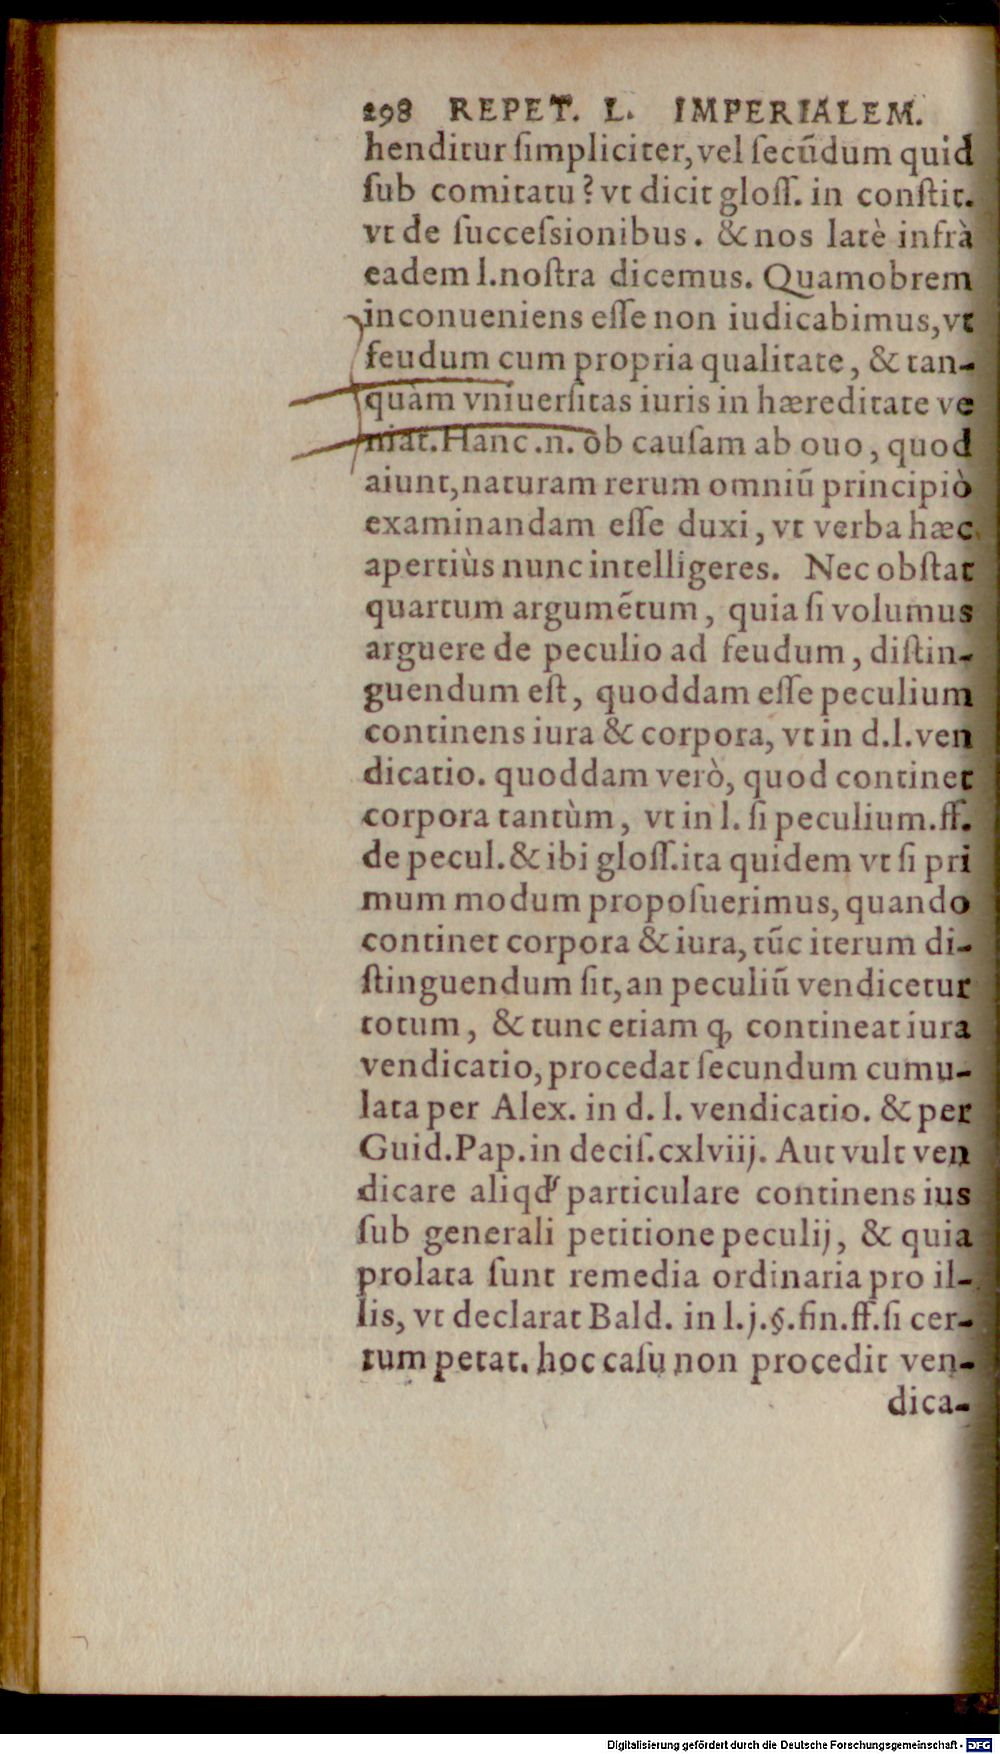 298 REPET. L. IMPERIALEM.
henditur ſimpliciter, vel ſecũdum quid
ſub comitatu? vt dicit gloſſ. in conſtit.
vt de ſucceſsionibus. & nos latè infrà
eadem l. noſtra dicemus. Quamobrem
inconueniens eſſe non iudicabimus, vt
feudum cum propria qualitate, & tan-
quàm vniuerſitas iuris in hæreditate ve
niat. Hanc .n. ob cauſam ab ouo, quod
aiunt, naturam rerum omniũ principiò
examinandam eſſe duxi, vt verba hæc
apertiùs nunc intelligeres. Nec obſtat
quartum argumẽtum, quia ſi volumus
arguere de peculio ad feudum, diſtin-
guendum eſt, quoddam eſſe peculium
continens iura & corpora, vt in d.l. ven
dicatio. quoddam verò, quod continet
corpora tantùm, vt in l. ſi peculium. ff.
de pecul. & ibi gloſſ. ita quidem vt ſi pri
mum modum propoſuerimus, quando
continet corpora & iura, tũc iterum di-
ſtinguendum ſit, an peculiũ vendicetur
totum, & tunc etiam ꝙ contineat iura
vendicatio, procedat ſecundum cumu-
lata per Alex. in d. l. vendicatio. & per
Guid. Pap. in deciſ. cxlviij. Aut vult ven
dicare aliqd' particulare continens ius
ſub generali petitione peculij, & quia
prolata ſunt remedia ordinaria pro il-
lis, vt declarat Bald. in l.j.§. fin. ff. ſi cer-
tum petat. hoc caſu non procedit ven-
dica-
Digitalisierung gefördert durch die Deutsche Forschungsgemeinschaft - DFG